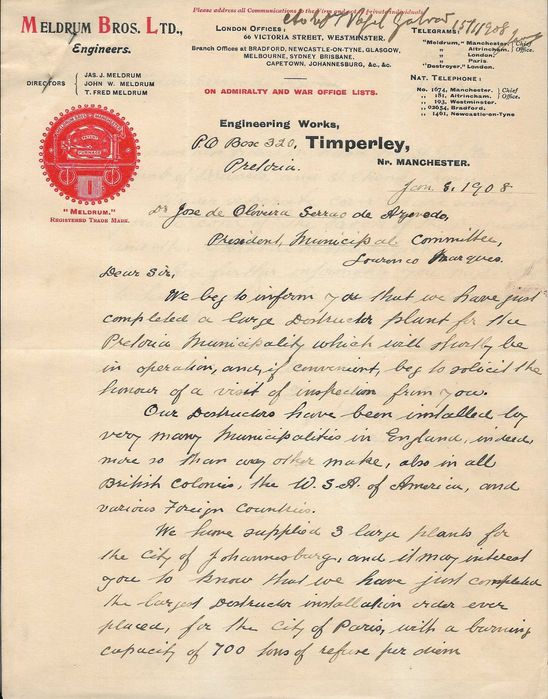 Please address all Communications to the Firm and not to private individuals
MELDRUM BROS. LTD.,
Engineers.
DIRECTORS { JAS. J. MELDRUM
JOHN W. MELDRUM
T. FRED MELDRUM
LONDON OFFICES:
66 VICTORIA STREET, WESTMINSTER.
Branch Offices at BRADFORD, NEWCASTLE-ON-TYNE, GLASGOW,
MELBOURNE, SYDNEY BRISBANE,
CAPETOWN, JOHANNESBURG, &c. &c.
ON ADMIRALTY AND WAR OFFICE LISTS.
15/1/1908
TELEGRAMS:
"Meldrum," Manchester. } Chief
" Altrincham. } Office.
" London.
" Paris.
"Destroyer," London.
NAT. TELEPHONE:
No. 1674, Manchester. } Chief
" 181, Altrincham. } Office.
" 193, Westminster.
" 02654, Bradford.
" 1461, Newcastle-on-Tyne
"MELDRUM."
REGISTERED TRADE MARK.
Engineering Works,
PO Box 320, Timperley,
Pretoria. NR. MANCHESTER.
Jan. 8. 1908
Dr Jose de Oliviera Serrao de Azevedo,
President, Municipal Committee,
Lourenco Marques.
Dear Sir,
We beg to inform you that we have just
completed a large Destructor plant for the
Pretoria Municipality which will shortly be
in operation, and, if convenient, beg to solicit the
honour of a visit of inspection from you.
Our Destructors have been installed by
very many Municipalities in England, indeed
more so than any other make, also in all
British Colonies, the U.S.A. of America, and
various Foreign Countries.
We have supplied 3 large plants for
the City of Johannesburg, and it may interest
you to know that we have just completed
the largest Destructor installation order ever
placed, for the City of Paris, with a burning
capacity of 700 tons of refuse per diem